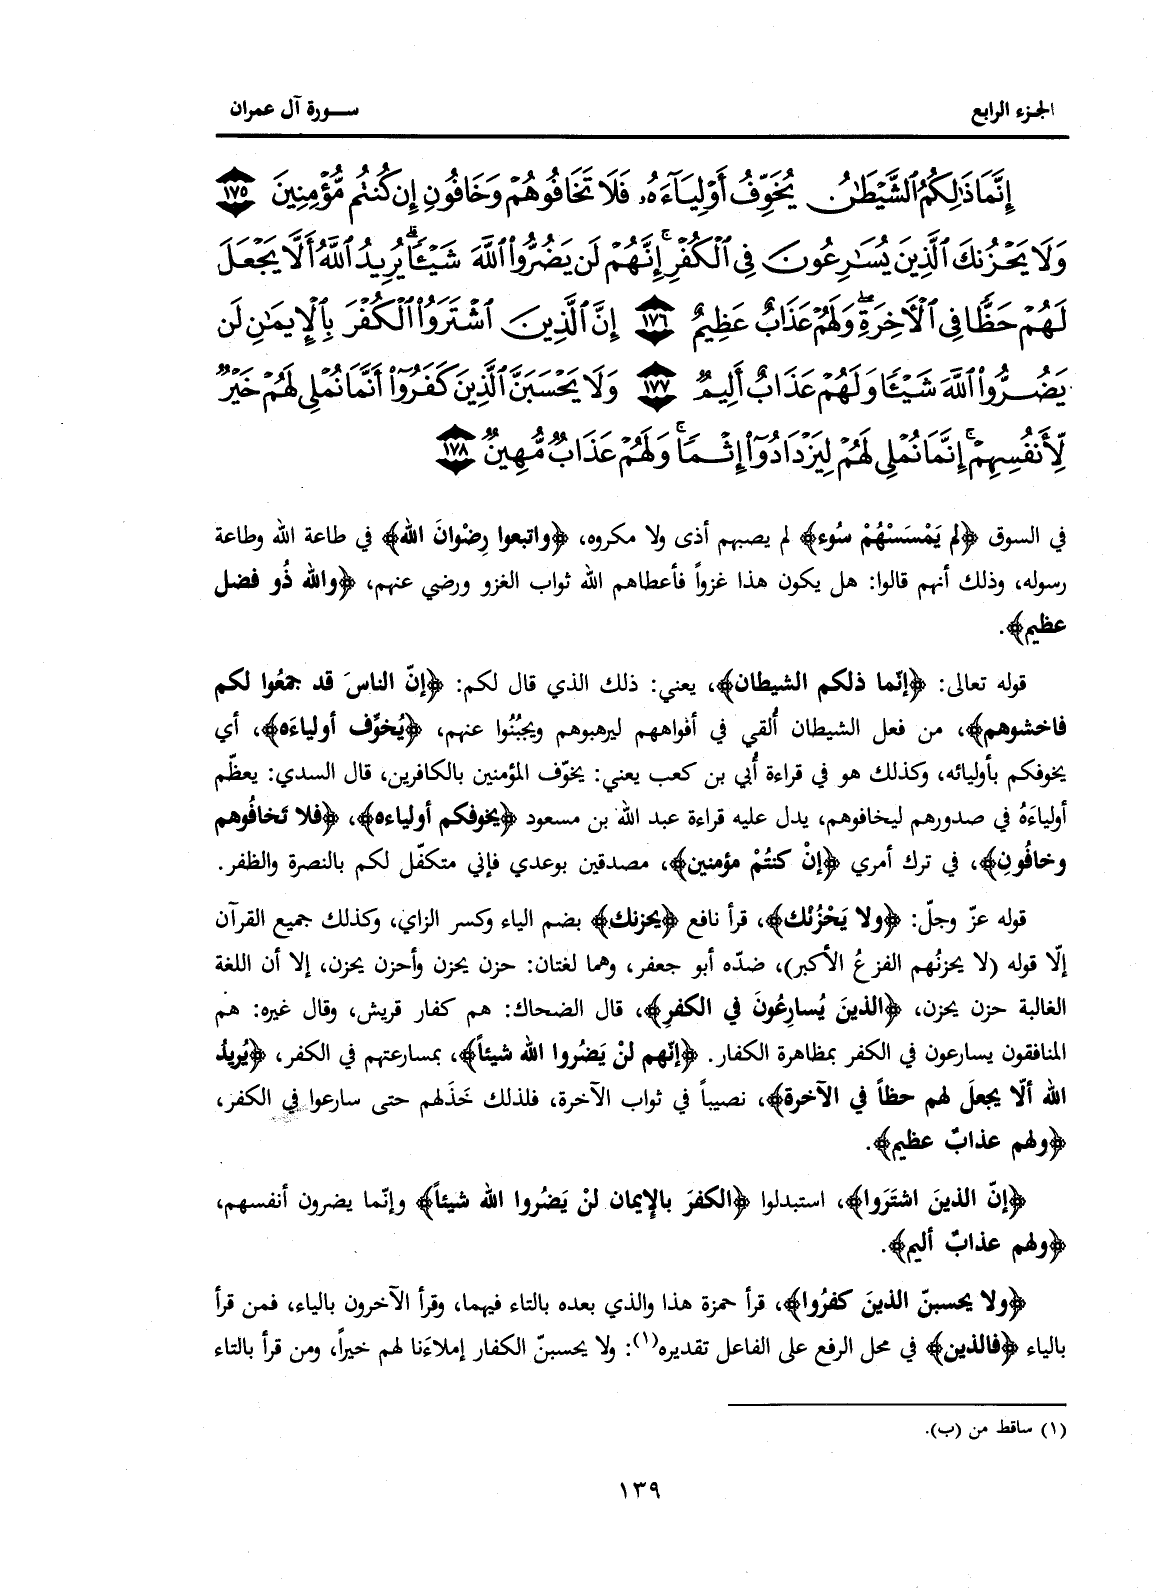 الجزء الرابع
سورة آل عمران
إِنَّمَا ذَٰلِكُمُ ٱلشَّيۡطَٰنُ يُخَوِّفُ أَوۡلِيَآءَهُۥ فَلَا تَخَافُوهُمۡ وَخَافُونِ إِن كُنتُم مُّؤۡمِنِينَ ١٧٥
وَلَا يَحۡزُنكَ ٱلَّذِينَ يُسَٰرِعُونَ فِي ٱلۡكُفۡرِۚ إِنَّهُمۡ لَن يَضُرُّواْ ٱللَّهَ شَيۡـٔٗاۗ يُرِيدُ ٱللَّهُ أَلَّا يَجۡعَلَ
لَهُمۡ حَظّٗا فِي ٱلۡأٓخِرَةِۖ وَلَهُمۡ عَذَابٌ عَظِيمٌ ١٧٦ إِنَّ ٱلَّذِينَ ٱشۡتَرَوُاْ ٱلۡكُفۡرَ بِٱلۡإِيمَٰنِ لَن
يَضُرُّواْ ٱللَّهَ شَيۡـٔٗا وَلَهُمۡ عَذَابٌ أَلِيمٞ ١٧٧ وَلَا يَحۡسَبَنَّ ٱلَّذِينَ كَفَرُوٓاْ أَنَّمَا نُمۡلِي لَهُمۡ خَيۡرٞ
لِّأَنفُسِهِمۡۚ إِنَّمَا نُمۡلِي لَهُمۡ لِيَزۡدَادُوٓاْ إِثۡمٗاۚ وَلَهُمۡ عَذَابٞ مُّهِينٞ ١٧٨
في السوق ﴿لم يَمْسَسْهُمْ سُوء﴾ لم يصبهم أذى ولا مكروه، ﴿واتبعوا رِضْوانَ الله﴾ في طاعة الله وطاعة
رسوله، وذلك أنهم قالوا: هل يكون هذا غزواً فأعطاهم الله ثواب الغزو ورضي عنهم، ﴿والله ذُو فضل
عظيم﴾.
قوله تعالى: ﴿إنّما ذلكم الشيطان﴾، يعني: ذلك الذي قال لكم: ﴿إنّ الناسَ قد جمعُوا لكم
فاخشوهم﴾، من فعل الشيطان أُلقي في أفواههم ليرهبوهم ويجبُنُوا عنهم، ﴿يُخوِّف أولياءَه﴾، أي
يخوفكم بأوليائه، وكذلك هو في قراءة أُبي بن كعب يعني: يخوّف المؤمنين بالكافرين، قال السدي: يعظّم
أولياءَهُ في صدورهم ليخافوهم، يدل عليه قراءة عبد الله بن مسعود ﴿يخوفكم أولياءه﴾، ﴿فلا تَخافُوهم
وخافُونِ﴾، في ترك أمري ﴿إنْ كنتُمْ مؤمنين﴾، مصدقين بوعدي فإني متكفّل لكم بالنصرة والظفر.
قوله عزّ وجلّ: ﴿ولا يَحْزُنْك﴾، قرأ نافع ﴿يحزنك﴾ بضم الياء وكسر الزاي، وكذلك جميع القرآن
إلّا قوله (لا يحزنُهم الفزعُ الأكبر)، ضدّه أبو جعفر، وهما لغتان: حزن يحزن وأحزن يحزن، إلا أن اللغة
الغالبة حزن يحزن، ﴿الذينَ يُسارِعُونَ في الكفرِ﴾، قال الضحاك: هم كفار قريش، وقال غيره: هم
المنافقون يسارعون في الكفر بمظاهرة الكفار. ﴿إنّهم لنْ يَضُروا الله شيئاً﴾، بمسارعتهم في الكفر، ﴿يُريدُ
الله ألّا يجعلَ لهم حظاً في الآخرة﴾، نصيباً في ثواب الآخرة، فلذلك خَذَلهم حتى سارعوا في الكفر،
﴿ولهم عذابٌ عظيم﴾.
﴿إنّ الذينَ اشتَرَوا﴾، استبدلوا ﴿الكفرَ بالإيمان لنْ يَضُروا الله شيئاً﴾ وإنّما يضرون أنفسهم،
﴿ولهم عذابٌ أليم﴾.
﴿ولا يحسبنّ الذينَ كفرُوا﴾، قرأ حمزة هذا والذي بعده بالتاء فيهما، وقرأ الآخرون بالياء، فمن قرأ
بالياء ﴿فالذين﴾ في محل الرفع على الفاعل تقديره(١): ولا يحسبنّ الكفار إملاءَنا لهم خيراً، ومن قرأ بالتاء
(١) ساقط من (ب).
١٣٩